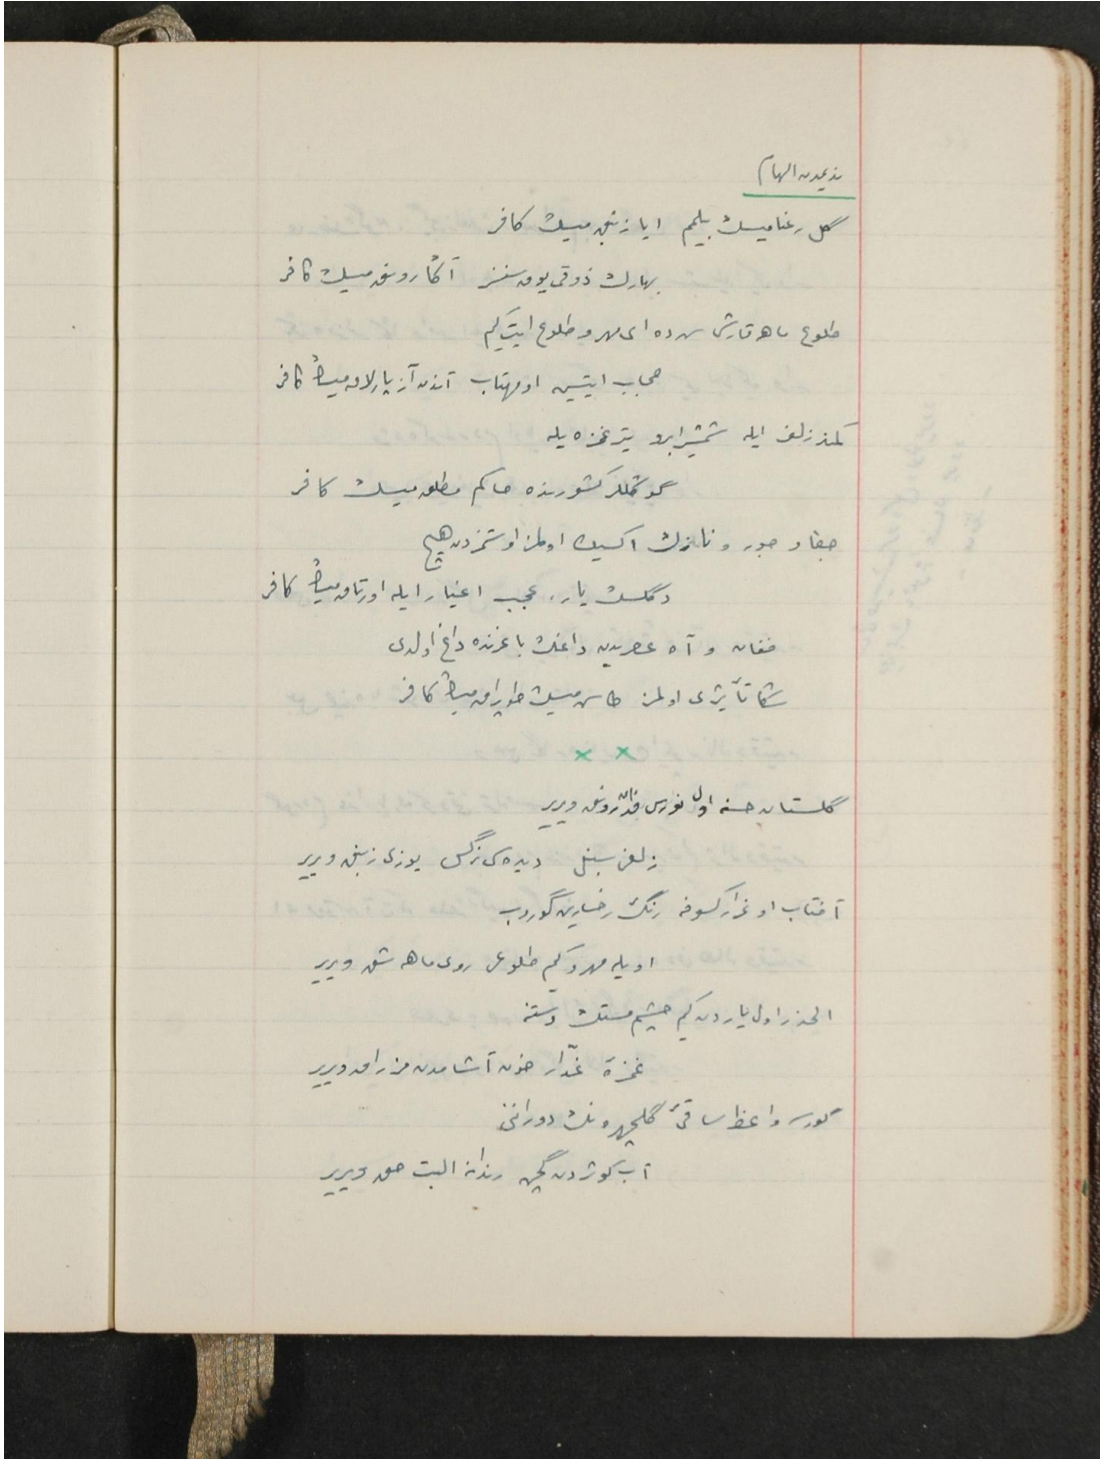 ندیمدن الهام
گل رعنامیسك بیلمم ایا زنبق میسك کافر
بهارك ذوقی یوق سنسز آڭا رونق میسك کافر
طلوع ماهه قارشی سن ده ای مهرو طلوع ایت کیم
حجاب ایتسین او مهتاب آندن آز پارلاق میسڭ کافر
کمند زلف ایله شمشیر ابرو یتر غمزه یله
گوڭللر کشورینده حاکم مطلق میسك کافر
جفا و جور و نازك اکسیك اولمز اوستمزدن هیچ
دگلسك یار، عجب اغیار ایله اورتاق میسڭ کافر
فغان و آه عصریدن داغك باغرنده داغ اولدی
سڭا تأثیری اولمز طاش میسك طوپراق میسڭ کافر
گلستان حسنه اول نورس فدان رونق ویریر
زلفی سنبل دیده سی نرگس یوزی زنبق ویریر
آفتاب اوغرار کسوفه رنگ رخسارین گوروب
اویله مهرو کیم طلوعی روی ماهه شق ویریر
الحذر اول یاردن کیم چشم مستك دستنه
غمزهٔ غدّار خون آشامدن مزراق ویریر
گورسه واعظ ساقیٔ گلچهره نك دوراننی
آب کوثردن گچن رندانه البت حق ویریر